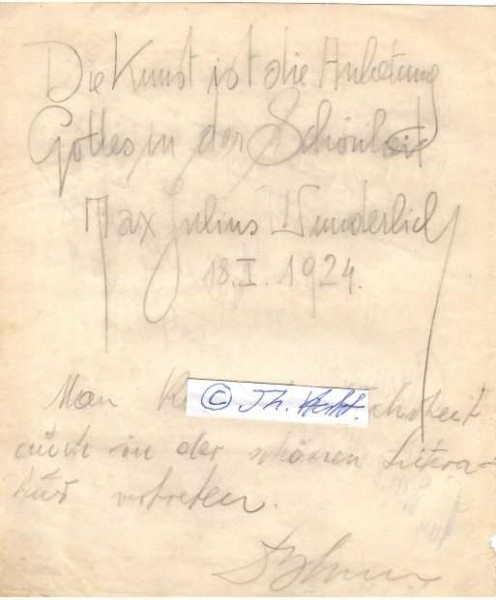 Die Kunst ist die Anbetung
Gottes in der Schönheit
Max Julius Wunderlich
18. I. 1924.
© Th. Hecht.
Man
auch in der schönen Litera-
tur vertreten.